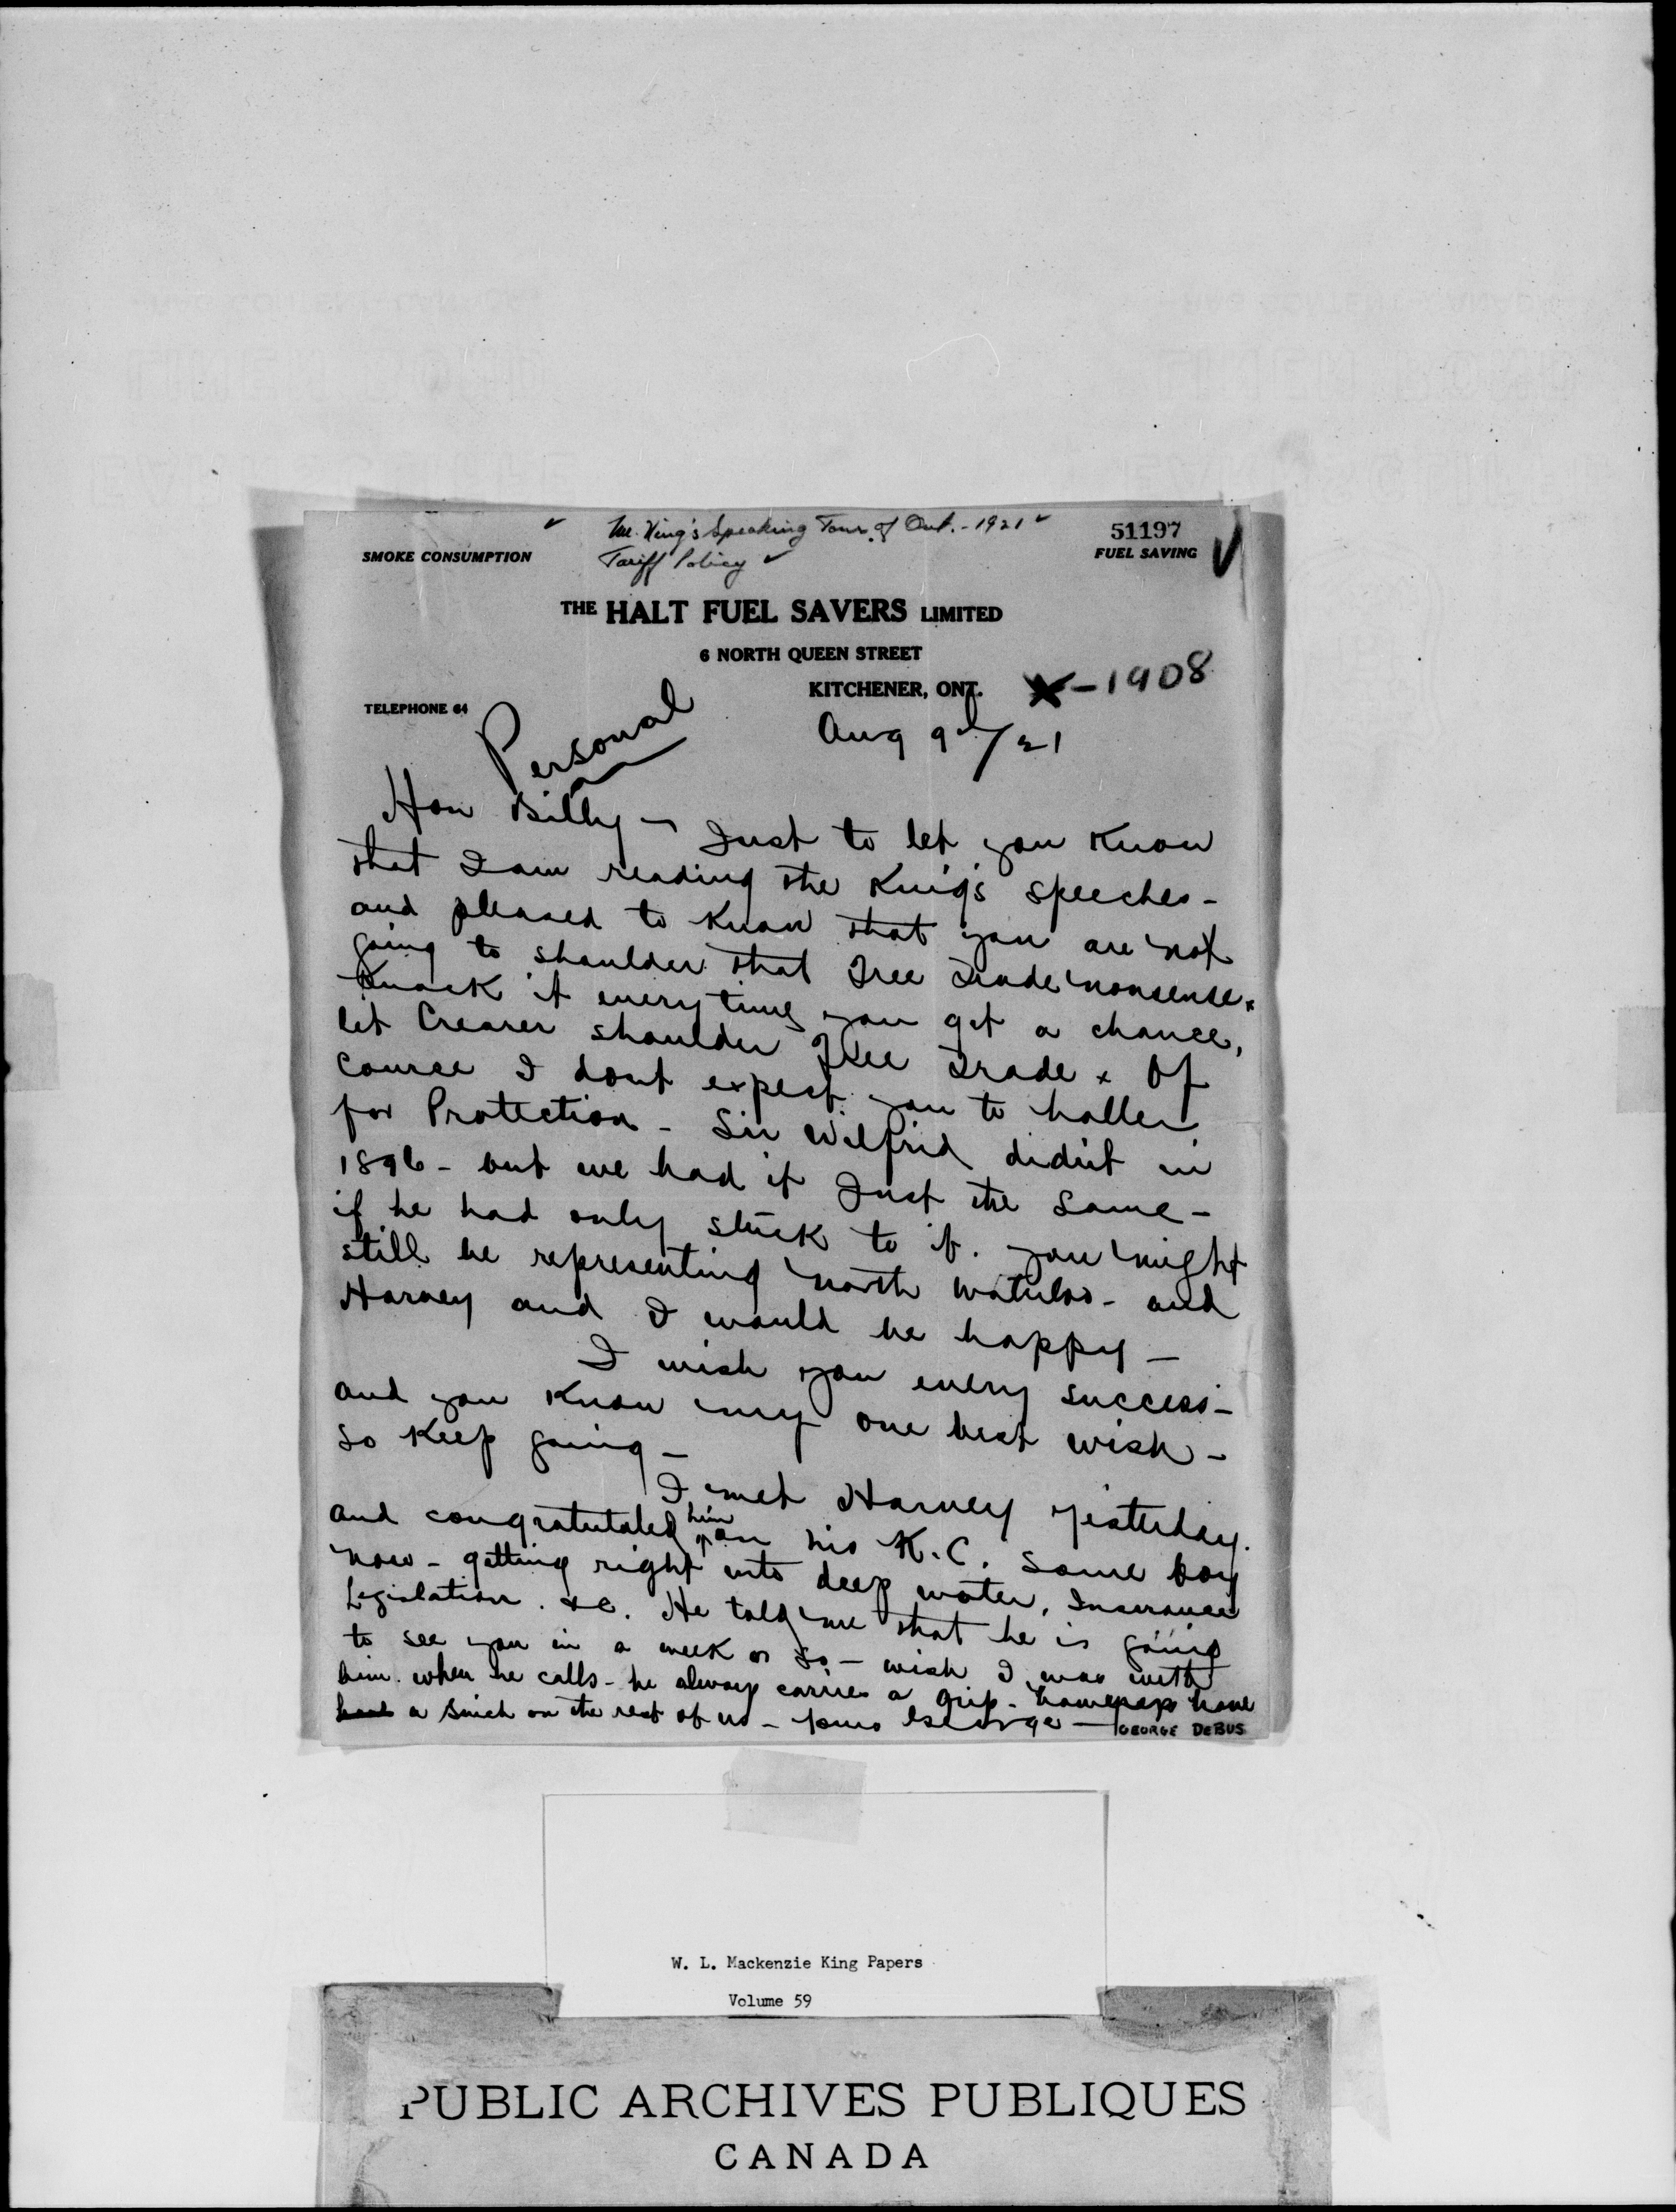 Mr. King's Speaking Tour of Ont. - 1921
51197
SMOKE CONSUMPTION
Tariff Policy
FUEL SAVING
THE HALT FUEL SAVERS LIMITED
6 NORTH QUEEN STREET
KITCHENER, ONT.
X-1908
TELEPHONE 64
Personal
Aug 9th/21
Hon Billy - Just to let you know
that I am reading the King's speeches -
and pleased to know that you are not
going to shoulder that Free Trade nonsense.
Knock it every time you get a chance,
let Crearer shoulder Free Trade x Of
course I dont expect you to holler
for Protection - Sir Wilfrid didn't in
1896 - but we had it Just the same -
if he had only stuck to it. you might
still be representing North Waterloo - and
Harvey and I would be happy -
I wish you every success -
and you know my one best wish -
so Keep going -
I met Harvey yesterday.
and congratulated him on his K.C. some boy
now - getting right into deep water, Insurance
Legislation. &c. He told me that he is going
to see you in a week or so - wish I was with
him. when he calls - he always carries a grip - have
a sinch on the rest of us - yours George - GEORGE DEBUS
W. L. Mackenzie King Papers
Volume 59
PUBLIC ARCHIVES PUBLIQUES
CANADA